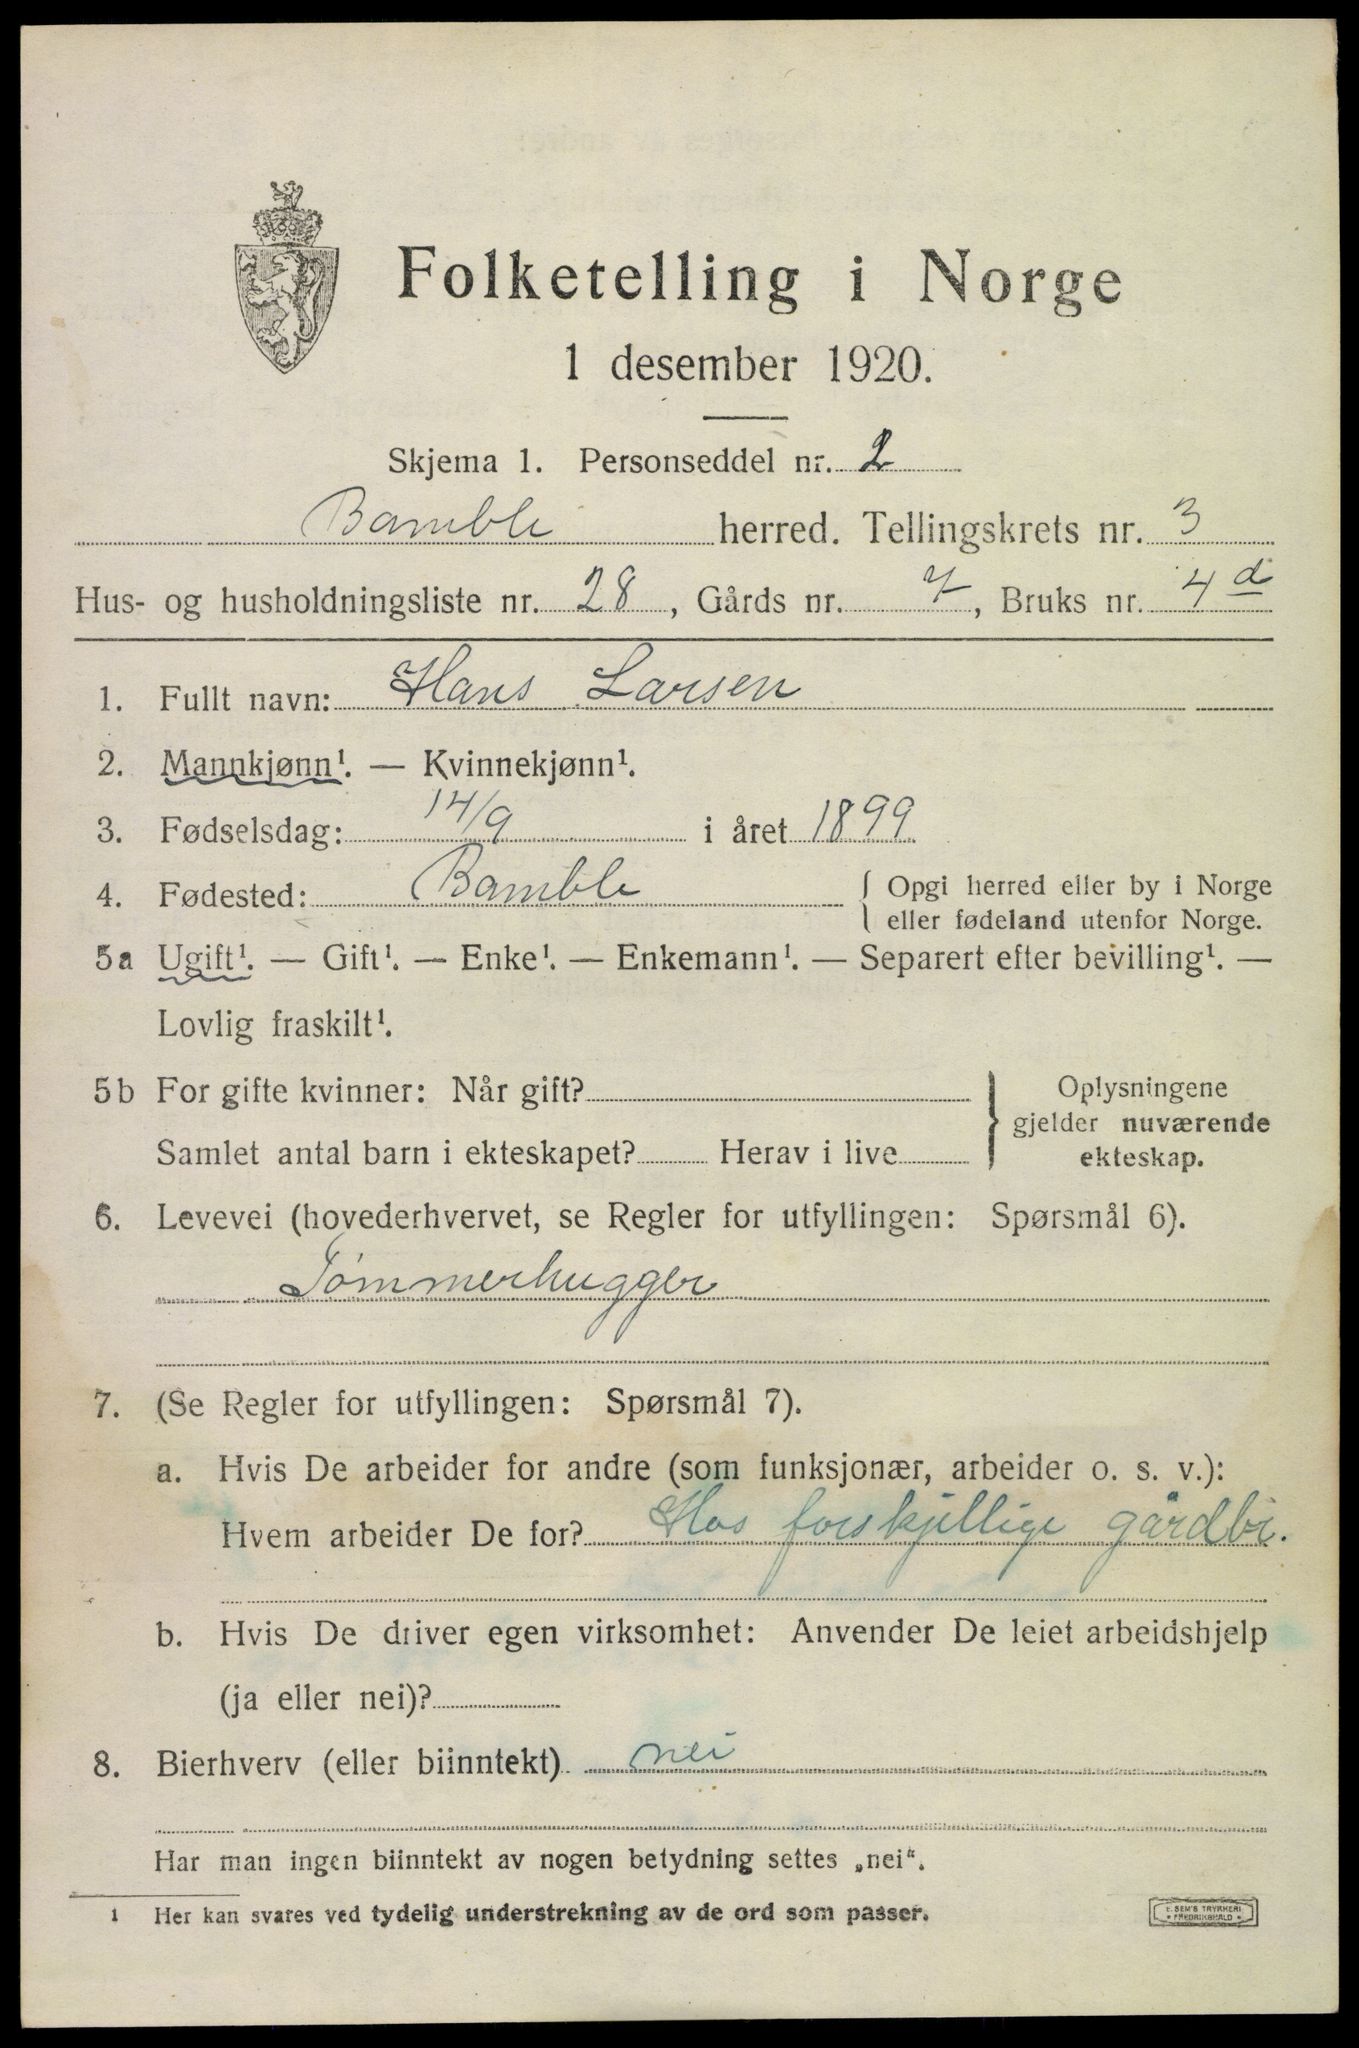 Folketelling i Norge
1 desember 1920.
Skjema 1. Personseddel nr. 2
Bamble herred. Tellingskrets nr. 3
Hus- og husholdningsliste nr. 28, Gårds nr. 7, Bruks nr. 4d
1. Fullt navn: Hans Larsen
2. Mannkjønn¹. — Kvinnekjønn¹.
3. Fødselsdag: 14/9 i året 1899
4. Fødested: Bamble { Opgi herred eller by i Norge
eller fødeland utenfor Norge.
5a Ugift¹. — Gift¹. — Enke¹. — Enkemann¹. — Separert efter bevilling¹. —
Lovlig fraskilt¹.
5b For gifte kvinner: Når gift?
Samlet antal barn i ekteskapet? Herav i live
Oplysningene
gjelder nuværende
ekteskap.
6. Levevei (hovederhvervet, se Regler for utfyllingen: Spørsmål 6).
Tømmerhugger
7. (Se Regler for utfyllingen: Spørsmål 7).
a. Hvis De arbeider for andre (som funksjonær, arbeider o. s. v.):
Hvem arbeider De for? Hos forskjellige gårdbr.
b. Hvis De driver egen virksomhet: Anvender De leiet arbeidshjelp
(ja eller nei)?
8. Bierhverv (eller biinntekt) nei
Har man ingen biinntekt av nogen betydning settes „nei“.
1 Her kan svares ved tydelig understrekning av de ord som passer.
E. SEM'S TRYKKERI
FREDRIKSHALD